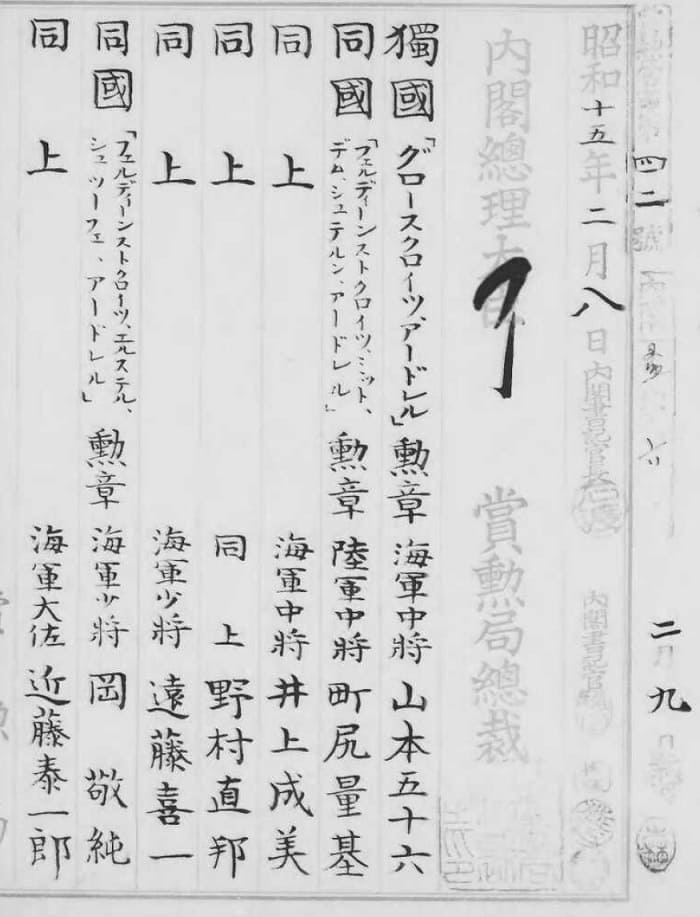 四二號
二 九
昭和十五年二月八日 內閣書記官長 內閣書記官
內閣總理大臣 賞勲局總裁
獨國「グロースクロイツ、アードレル」勲章 海軍中將 山本五十六
同國「フェルディーンストクロイツ、ミット、
デム、シュテルン、アードレル」勲章 陸軍中將 町尻量基
同 上 海軍中將 井上成美
同 上 同上 野村直邦
同 上 海軍少將 遠藤喜一
同國「フェルディーンストクロイツ、エルステル、
シュツーフェ、アードレル」勲章 海軍少將 岡敬純
同 上 海軍大佐 近藤泰一郎